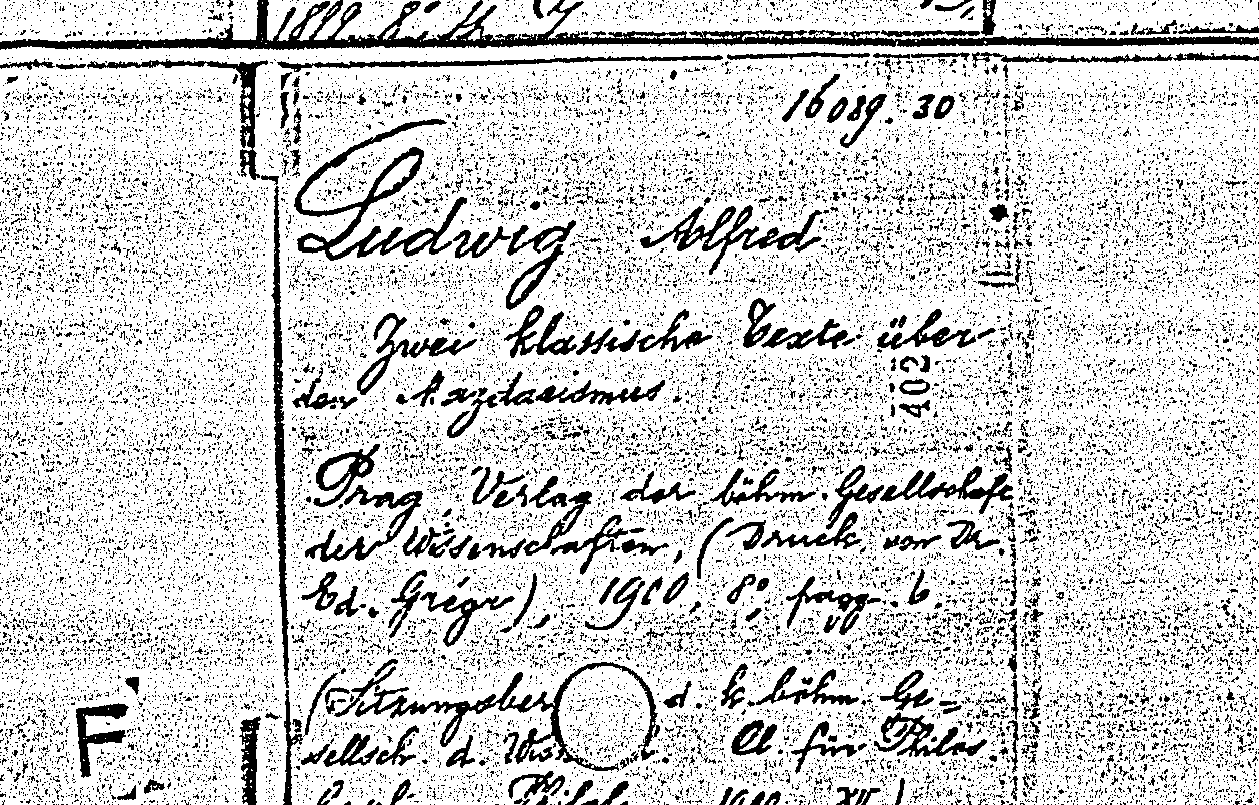 1899. 8°,
16089. 30
Ludwig Alfred
Zwei klassische Texte über
den Mazdaeismus.
402
Prag, Verlag der böhm. Gesellschaft
der Wissenschaften, (Druck von Dr.
Ed. Grégr), 1900, 8°, pagg. 6.
(Sitzungsber d. k. böhm. Ge-
sellsch. d. Wiss. Cl. für Philos.
F